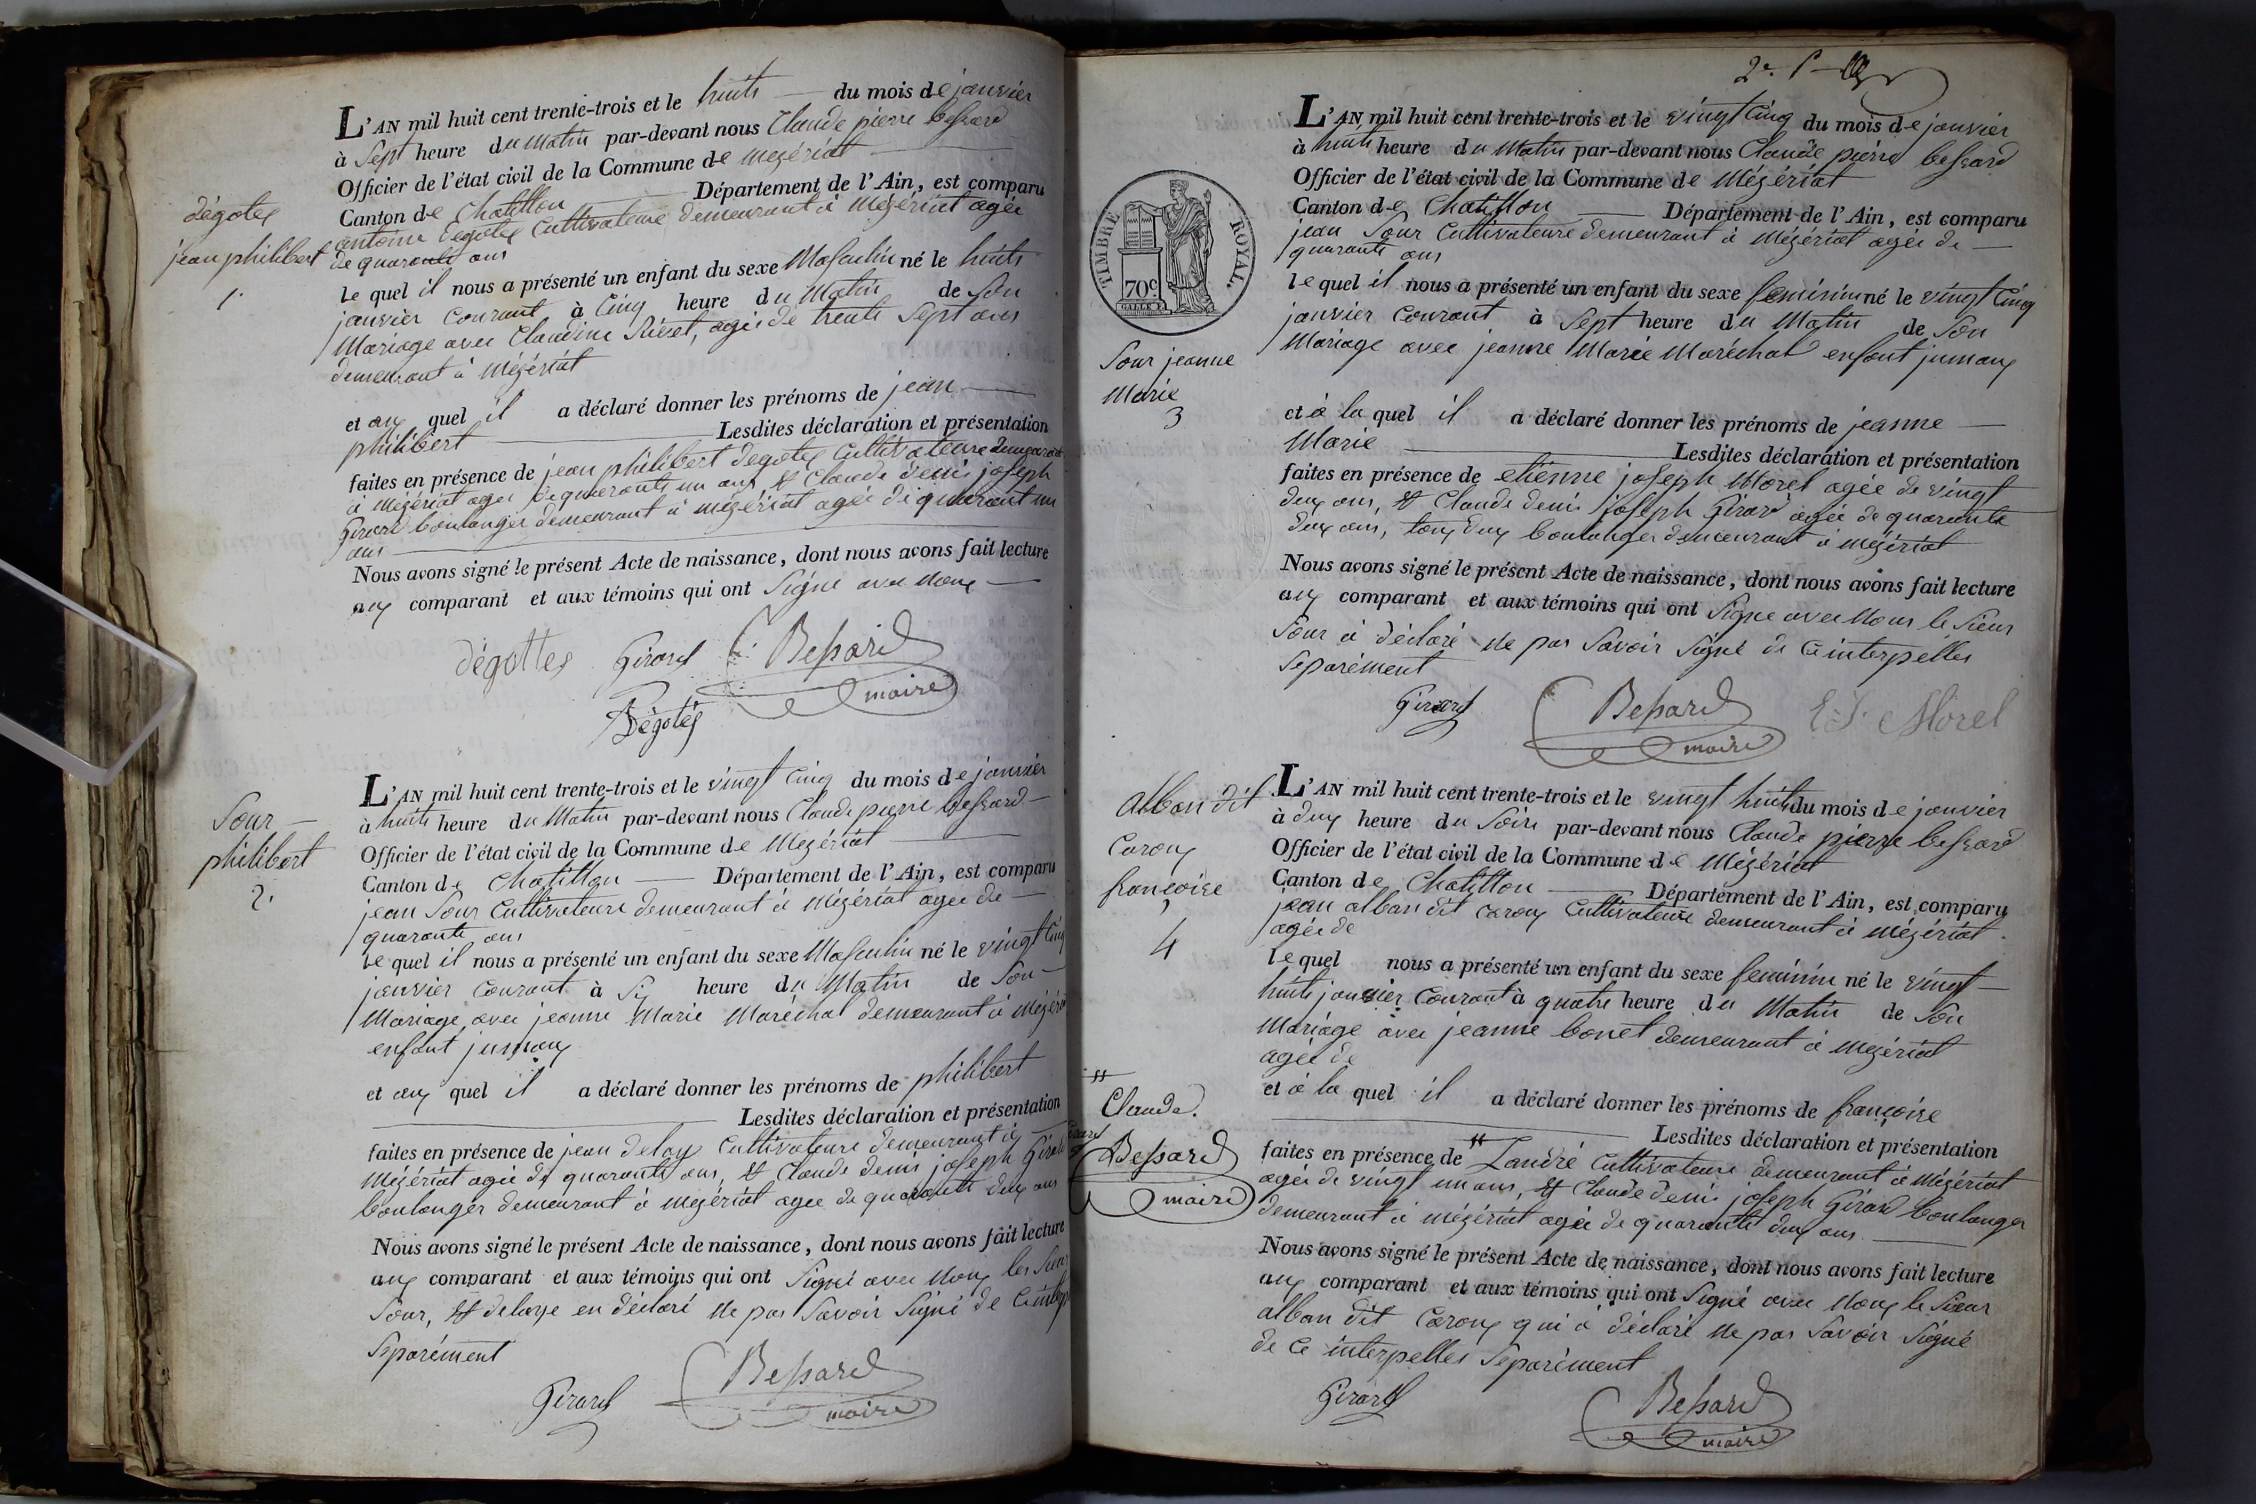 dégotex
jean philibert
1.
L'AN mil huit cent trente-trois et le huits du mois de janvier
à Sept heure du Matin par-devant nous Claude pierre bessard
Officier de l'état civil de la Commune de mezériat
Canton de Chatillon Département de l'Ain, est comparu
antoine degotex Cultivateure demeurant à Mézériat agée
de quarante ans
le quel il nous a présenté un enfant du sexe Masculin né le huits
janvier Courant à Cinq heure du Matin de Son
Mariage avec Claudine agée de trente Sept ans
demeurant à Mézériat
et aux quel il a déclaré donner les prénoms de jean
philibert Lesdites déclaration et présentation
faites en présence de jean philibert degotex Cultivateure demeurant
à Mézériat agée de quarante un ans et Claude denis joseph
Girard boulanger demeurant à mézériat agée de quarant un
ans
Nous avons signé le présent Acte de naissance, dont nous avons fait lecture
aux comparant et aux témoins qui ont Signé avec Nous
dégottex Girard Bessard
maire
Dégotéx
Sour
philibert
2.
L'AN mil huit cent trente-trois et le vingt Cinq du mois de janvier
à huits heure du Matin par-devant nous Claude pierre bessard
Officier de l'état civil de la Commune de Mezériat
Canton de Chatillon Département de l'Ain, est comparu
jean Sour Cultivateure demeurant à Mézériat agée de
quarante ans
le quel il nous a présenté un enfant du sexe Masculin né le vingt Cinq
janvier Courant à Six heure du Matin de Son
Mariage avec jeanne Marie Maréchal demeurant à Mézéri
enfant jumaux
et aux quel il a déclaré donner les prénoms de philibert
Lesdites déclaration et présentation
faites en présence de jean delay Cultivateure demeurant à
Mézériat agée de quarante ans, et Claude denis joseph Girard
boulanger demeurant à mezériat agée de quarante deux ans
Nous avons signé le présent Acte de naissance, dont nous avons fait lecture
aux comparant et aux témoins qui ont Signé avec Nous les Sieur
Sour, et delaye en déclaré Ne pas Savoir Signé de Ce
Séparément
Girard Bessard
maire
2e.
TIMBRE ROYAL.
70c
Sour jeanne
Marie
3
L'AN mil huit cent trente-trois et le vingt Cinq du mois de janvier
à huits heure du Matin par-devant nous Claude pierre bessard
Officier de l'état civil de la Commune de Mézériat
Canton de Chatillon Département de l'Ain, est comparu
jean Sour Cultivateure demeurant à Mézériat agée de
quarante ans
le quel il nous a présenté un enfant du sexe feminin né le vingt Cinq
janvier Courant à Sept heure du Matin de Son
Mariage avec jeanne Marie Maréchal enfant jumaux
et à la quel il a déclaré donner les prénoms de jeanne
Marie Lesdites déclaration et présentation
faites en présence de etienne joseph Morel agée de vingt
deux ans, et Claude denis joseph Girard agée de quarante
deux ans, tous deux boulanger demeurant à mézériat
Nous avons signé le présent Acte de naissance, dont nous avons fait lecture
aux comparant et aux témoins qui ont Signé avec Nous le Sieur
Sour à déclaré Ne pas Savoir Signé de Ce interpelles
Séparément
Girard Bessard E. J. Morel
maire
alban dit
Caroux
françoise
4
L'AN mil huit cent trente-trois et le vingt huits du mois de janvier
à deux heure du Soire par-devant nous Claude pierre bessard
Officier de l'état civil de la Commune de Mézériat
Canton de Chatillon Département de l'Ain, est comparu
jean alban dit Caroux Cultivateure demeurant à mézériat
agée de
le quel nous a présenté un enfant du sexe feminin né le vingt
huits janvier Courant à quatre heure du Matin de Son
Mariage avec jeanne bonet demeurant à mezériat
agée de
et à la quel il a déclaré donner les prénoms de françoise
Lesdites déclaration et présentation
Claude.
Bessard
maire
faites en présence de Landré Cultivateure demeurant à Mézériat
agée de vingt un ans, et Claude denis joseph Girard boulanger
demeurant à mézériat agée de quarante deux ans
Nous avons signé le présent Acte de naissance, dont nous avons fait lecture
aux comparant et aux témoins qui ont Signé avec Nous le Sieur
alban dit Caroux qui à déclaré Ne pas Savoir Signé
de Ce interpelles Séparément
Girard Bessard
maire